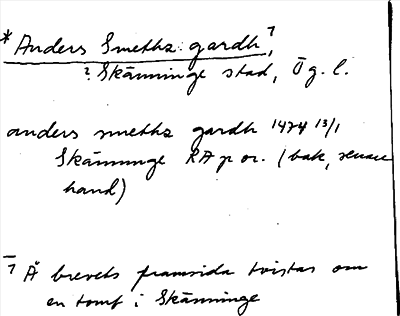 * Anders Smethz gardh, ⁊
? Skänninge stad, Ög. l.
anders smethz gardh 1474 13/1
Skänninge RA p or. (bak, senare
hand)
⁊ Å brevets framsida tvistas om
en tomt i Skänninge